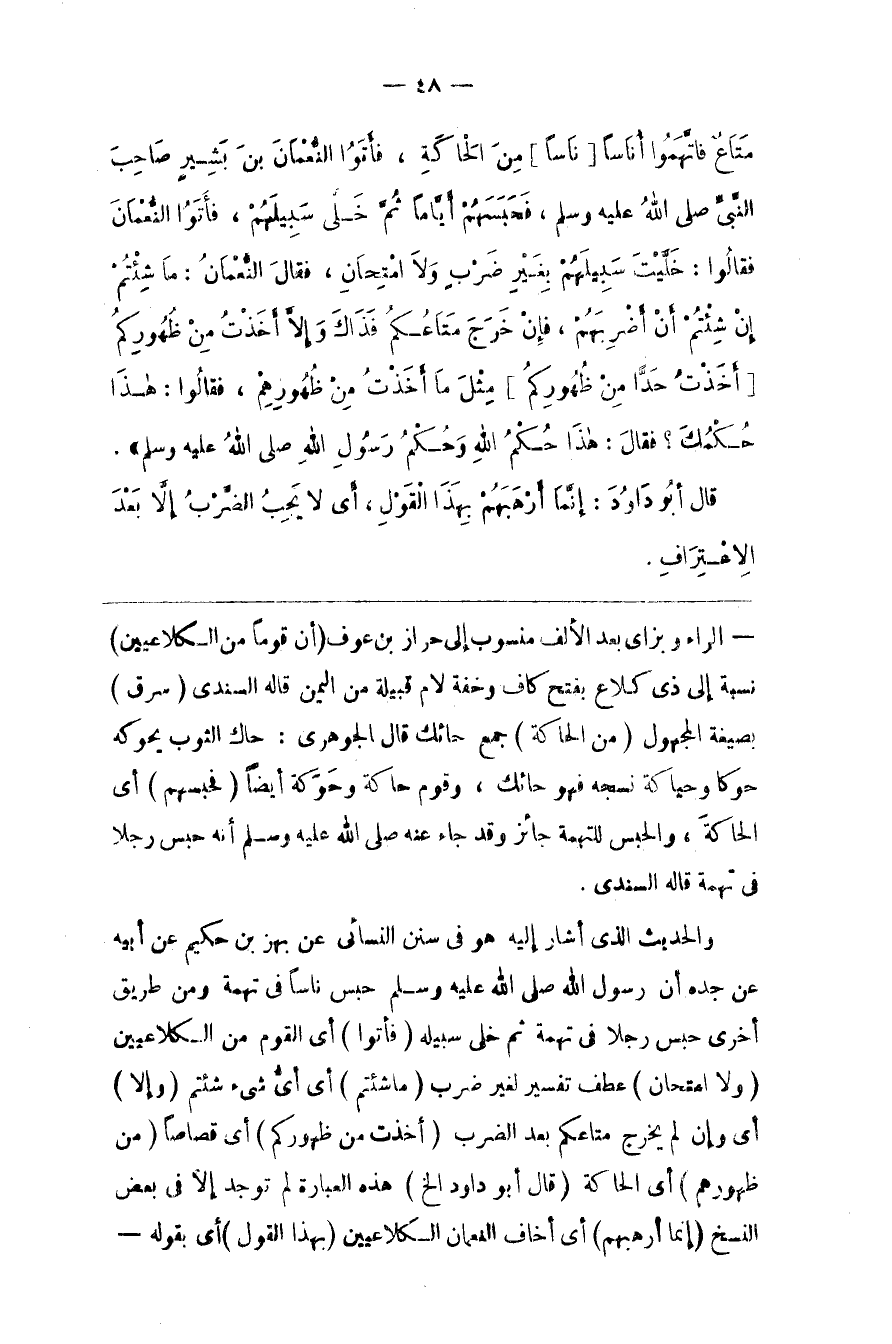 — ٤٨ —
مَتَاعٌ فاتَّهَمُوا أُنَاساً [ نَاساً ] مِنَ الْحَاكَةِ ، فأَتَوُا النُّعْمَانَ بنَ بَشِيرٍ صَاحِبَ
النَّبيِّ صلى اللهُ عليه وسلم ، فَحَبَسَهُمْ أَيَّاماً ثُمَّ خَلَّى سَبِيلَهُمْ ، فأَتَوُا النُّعْمَانَ
فقالُوا : خَلَّيْتَ سَبِيلَهُمْ بِغَيْرِ ضَرْبٍ وَلاَ امْتِحَانٍ ، فقالَ النُّعْمَانُ : مَا شِئْتُمْ
إِنْ شِئْتُمْ أَنْ أَضْرِبَهُمْ ، فإِنْ خَرَجَ مَتَاعُكُمُ فَذَاكَ وَإِلاَّ أَخَذْتُ مِنْ ظُهُورِكُمُ
[ أَخَذْتُ حَدًّا مِنْ ظُهُورِكُمُ ] مِثْلَ مَا أَخَذْتُ مِنْ ظُهُورِهِمْ ، فقالُوا : هٰذَا
حُكْمُكَ ؟ فقالَ : هٰذَا حُكْمُ اللهِ وَحُكْمُ رَسُولِ اللهِ صلى اللهُ عليه وسلم» .
قال أَبُو دَاوُدَ : إِنَّمَا أَرْهَبَهُمْ بِهَذَا الْقَوْلِ ، أَى لا يَجِبُ الضَّرْبُ إِلَّا بَعْدَ
الِاعْتِرَافِ .
— الراء وبزاى بعد الألف منسوب إلى حراز بن عوف (أن قوماً من الكلاعيين)
نسبة إلى ذى كلاع بفتح كاف وخفة لام قبيلة من اليمن قاله السندى ( سرق )
بصيغة المجهول ( من الحاكة ) جمع حائك قال الجوهرى : حاك الثوب يحوكه
حوكا وحياكة نسجه فهو حائك ، وقوم حاكة وحَوَكة أيضاً ( فحبسهم ) أى
الحاكة ، والحبس للتهمة جائز وقد جاء عنه صلى الله عليه وسلم أنه حبس رجلا
فى تهمة قاله السندى .
والحديث الذى أشار إليه هو فى سنن النسائى عن بهز بن حكيم عن أبيه
عن جده أن رسول الله صلى الله عليه وسلم حبس ناساً فى تهمة ومن طريق
أخرى حبس رجلا فى تهمة ثم خلى سبيله ( فأتوا ) أى القوم من الكلاعيين
( ولا امتحان ) عطف تفسير لغير ضرب ( ماشئتم ) أى أىُّ شىء شئتم ( وإلا )
أى وإن لم يخرج متاعكم بعد الضرب ( أخذت من ظهوركم ) أى قصاصاً ( من
ظهورهم ) أى الحاكة ( قال أبو داود الخ ) هذه العبارة لم توجد إلا فى بعض
النسخ (إنما أرهبهم) أى أخاف النعمان الكلاعيين (بهذا القول ) أى بقوله —